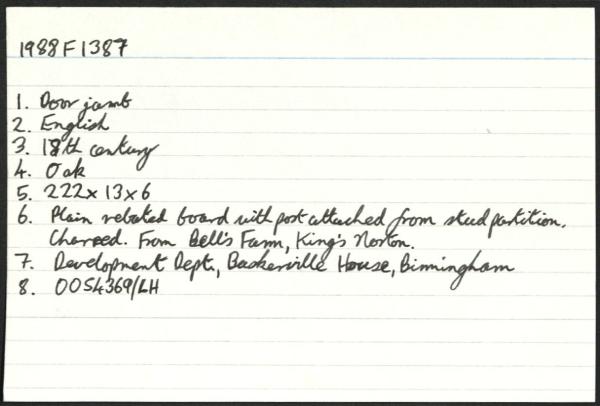 1988F1387
1. Door jamb
2. English
3. 18th century
4. Oak
5. 222x13x6
6. Plain rebated board with post attached from stud partition.
Charred. From Bell's Farm, King's Norton.
7. Development Dept., Baskerville House, Birmingham
8. OOS4369/LH